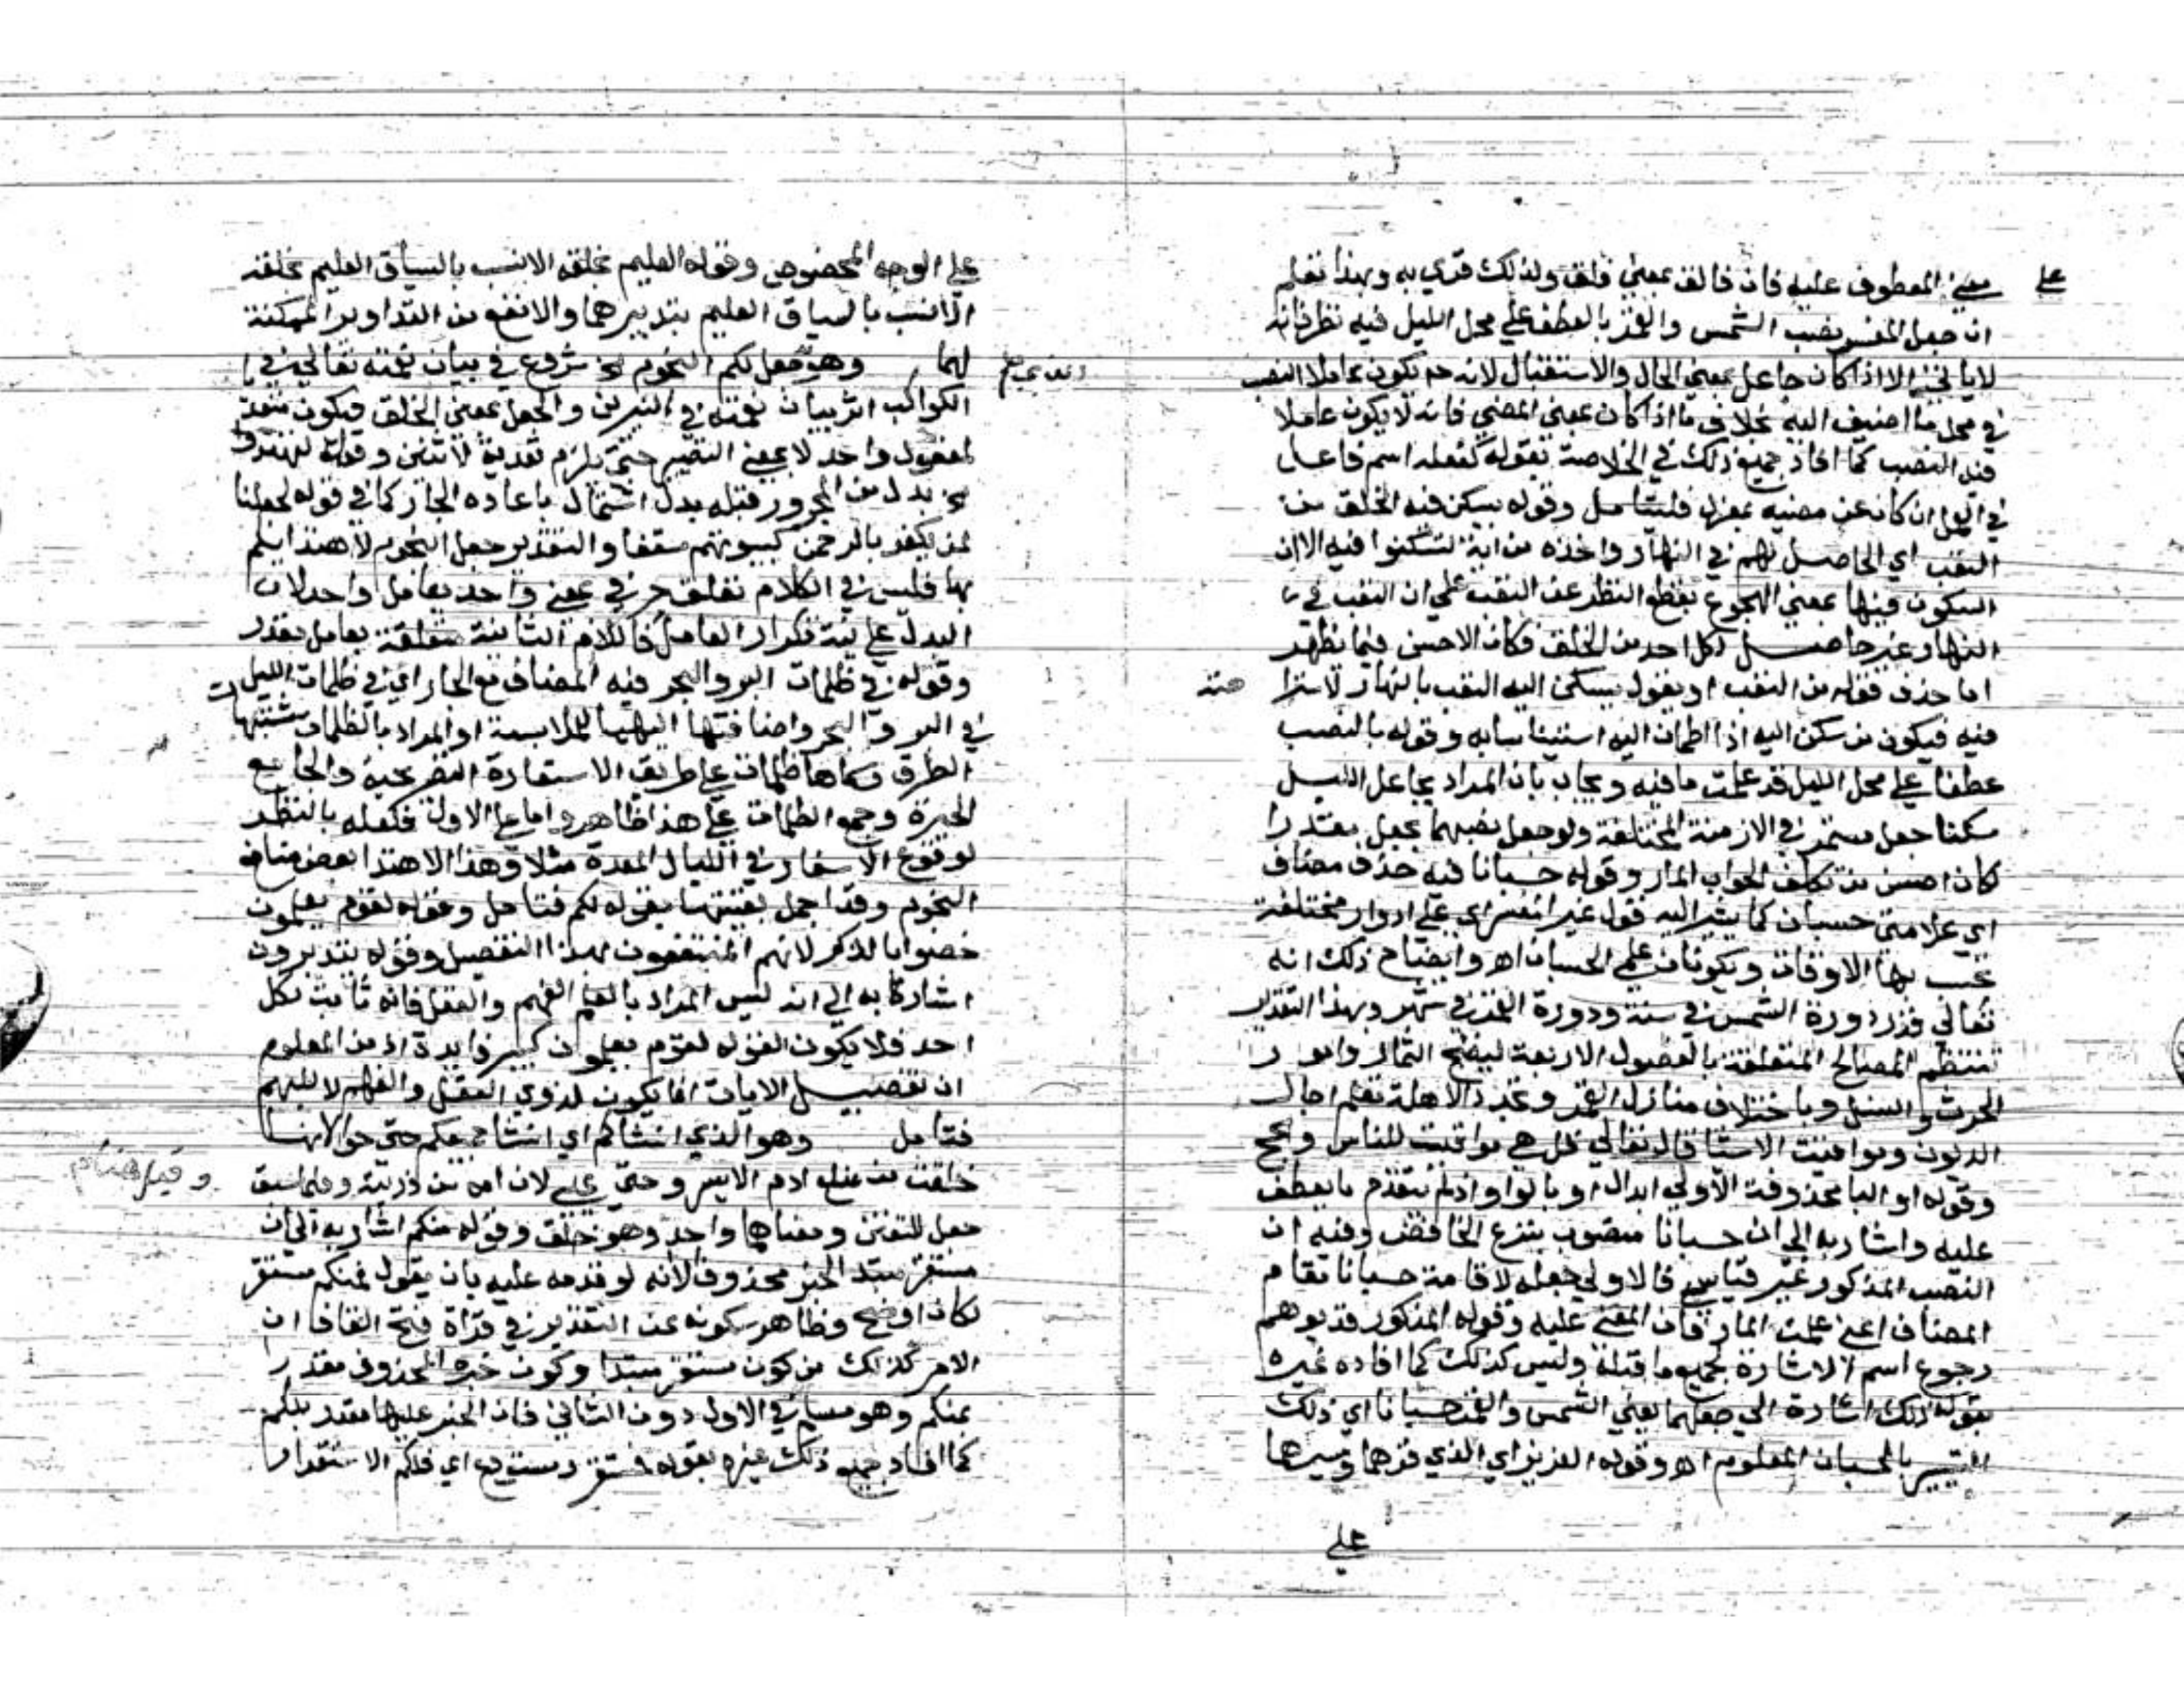 على معنى المعطوف عليه فان فالق بمعنى فلق ولذلك قرئ به وبهذا تعلم
ان جعل المفسر نصب الشمس والقمر بالعطف على محل الليل فيه نظر فانه
لا ياتي الا اذا كان جاعل بمعنى الحال والاستقبال لانه ح يكون عاملا النصب
في محل ما اضيف اليه بخلاف ما اذا كان بمعنى المضي فانه لا يكون عاملا
فيه النصب كما افاد جميع ذلك في الخلاصة بقوله كفعله اسم فاعل
في العمل ان كان عن مضيه بمعزل فليتامل وقوله يسكن فيه الخلق من
التعب اي الحاصل لهم في النهار واخذه من اية لتسكنوا فيه الا ان
السكون فيها بمعنى الهجوع بقطع النظر عن التعب على ان التعب في
النهار غير حاصل لكل احد من الخلق فكان الاحسن فيما يظهر
اما حذف قوله من التعب او يقول يسكن اليه التعب بالنهار لاستراحته
فيه فيكون من سكن اليه اذا اطمان اليه استيناسا به وقوله بالنصب
عطفا على محل الليل قد علمت ما فيه ويجاب بان المراد بجاعل الليل
سكنا جعل مستمر في الازمنة المختلفة ولو جعل نصبهما بجعل مقدرا
كان احسن من تكلف الجواب المار وقوله حسبانا فيه حذف مضاف
اي علامتي حسبان كما يشير اليه قول غير اي على ادوار مختلفة
تحسب بها الاوقات ويكونان علمي الحسبان اه وايضاح ذلك انه
تعالى قدر دورة الشمس في سنة ودورة القمر في شهر وبهذا التقدير
تنتظم المصالح المتعلقة بالفصول الاربعة لينضج الثمار وامور
الحرث والنسل وباختلاف منازل القمر وتجدد الاهلة تعلم اجال
الديون ومواقيت الاشيا قال تعالى قل هي مواقيت للناس والحج
وقوله او البا محذوفة الاولى ابدال او بالواو اذ لم يتقدم ما يعطف
عليه واشار به الى ان حسبانا منصوب بنزع الخافض وفيه ان
النصب المذكور غير قياسي فالاولى جعله لاقامة حسبانا مقام
المضاف اعني علمت المار فان المعنى عليه وقوله المذكور قد يوهم
رجوع اسم الاشارة لجميع ما قبله وليس كذلك كما افاده غيره
بقوله ذلك اشارة الى جعلهما يعني الشمس والقمر حسبانا اي ذلك
التسيير بالحسبان المعلوم اه وقوله العزيز اي الذي قدرهما وسيرهما
على
على الوجه المخصوص وقوله العليم بخلقه الانسب بالسياق العليم بخلقه
الانسب بالسياق العليم بتدبيرهما والانفع من التداوير الممكنة
لهما وهو جعل لكم النجوم الخ شروع في بيان نعمته تعالى في
الكواكب اثر بيان نعمته في النيرين والجعل بمعنى الخلق فيكون متعد
لمفعول واحد لا بمعنى التصيير حتى يلزم تعديه لاثنين وقوله لتهتدوا
الخ بدل من المجرور قبله بدل اشتمال باعادة الجار كما في قوله لجعلنا
لمن يكفر بالرحمن لبيوتهم سقفا والتقدير جعل النجوم لاهتدايكم
بها فليس في الكلام تعلق حرفي بمعنى واحد بعامل واحد لان
البدل على نية تكرار العامل فاللام الثانية متعلقة بعامل مقدر
وقوله في ظلمات البر والبحر فيه المضاف مع الجار اي في ظلمات الليل
في البر والبحر واضافتها اليهما للملابسة او المراد بالظلمات مشتبهات
الطرق وسماها ظلمات على طريق الاستعارة التصريحية والجامع
الحيرة وجمع الظلمات على هذا ظاهر واما على الاول فلعله بالنظر
لوقوع الاسفار في الليال المعدة مثلا وهذا الاهتدا بعض منافع
النجوم وقد اجمل بقيتها بقوله لكم فتامل وقوله لقوم يعلمون
خصوا بالذكر لانهم المنتفعون بهذا التفصيل وقوله يتدبرون
اشار به الى انه ليس المراد بالعلم الفهم والعقل فانه ثابت لكل
احد فلا يكون لقوله لقوم يعلمون كبير فايدة اذ من المعلوم
ان تفصيل الايات انما يكون لذوي العقل والفهم لا للبهم
فتامل وهو الذي انشاكم اي انشا جميعكم حتى حوا لانها
خلقت من ضلع ادم الايسر وحتى عيسى لان امه من ذريته وفيما سبق
جعل للتفنن ومعناهما واحد وهو خلق وقوله منكم اشار به الى ان
مستقر مبتدا الخبر محذوف لانه لو قدمه عليه بان يقول فمنكم مستقر
لكان اوضح وظاهر سكوته عن التقدير في قراة فتح القاف ان
الامر كذلك من كون مستقر مبتدا وكون خبره المحذوف مقدر
بمنكم وهو مسلم في الاول دون الثاني فان الخبر عليها مقدر بلكم
كما افاد جميع ذلك غيره بقوله فمستقر ومستودع اي فلكم الاستقرار